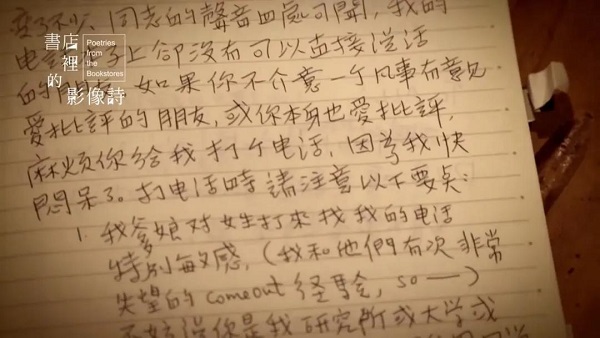 書店裡的影像詩
Poetries from the Bookstores
變了不少，同志的聲音四處可聞，我的
电話 子上卻沒有可以直接说话
的朋友，如果你不介意一个凡事有意見
愛批評的朋友，或你本身也愛批評，
麻烦你給我打个电話，因為我快
悶呆了。打电话時請注意以下要点：
1. 我爹娘对女生打來找我的电话
特別敏感，(我和他們有次非常
失望的comeout 經驗，so——)
不妨说你是我研究所或大学或